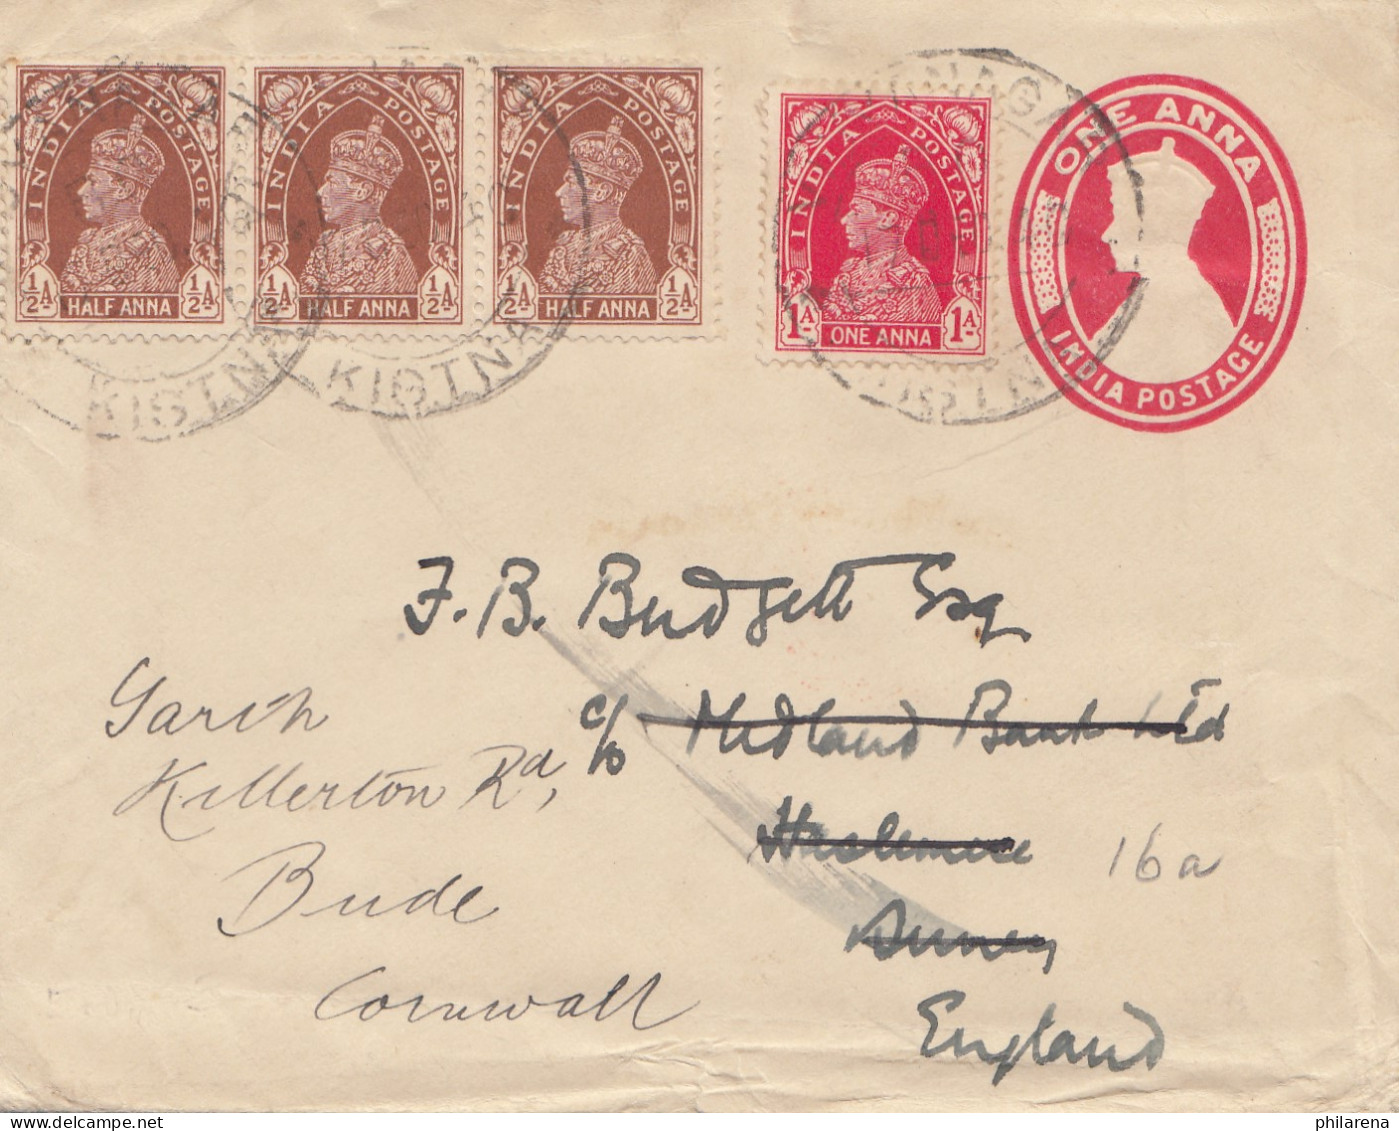 INDIA POSTAGE
½A HALF ANNA ½A
INDIA POSTAGE
½A HALF ANNA ½A
INDIA POSTAGE
½A HALF ANNA ½A
INDIA POSTAGE
1A ONE ANNA 1A
ONE ANNA
INDIA POSTAGE
KISTNA
KISTNA
KISTNA
F. B. Budgett Esq
c/o Midland Bank Ltd
Haslemere
Surrey
England
16a
Killerton Rd,
Bude
Cornwall
philarena